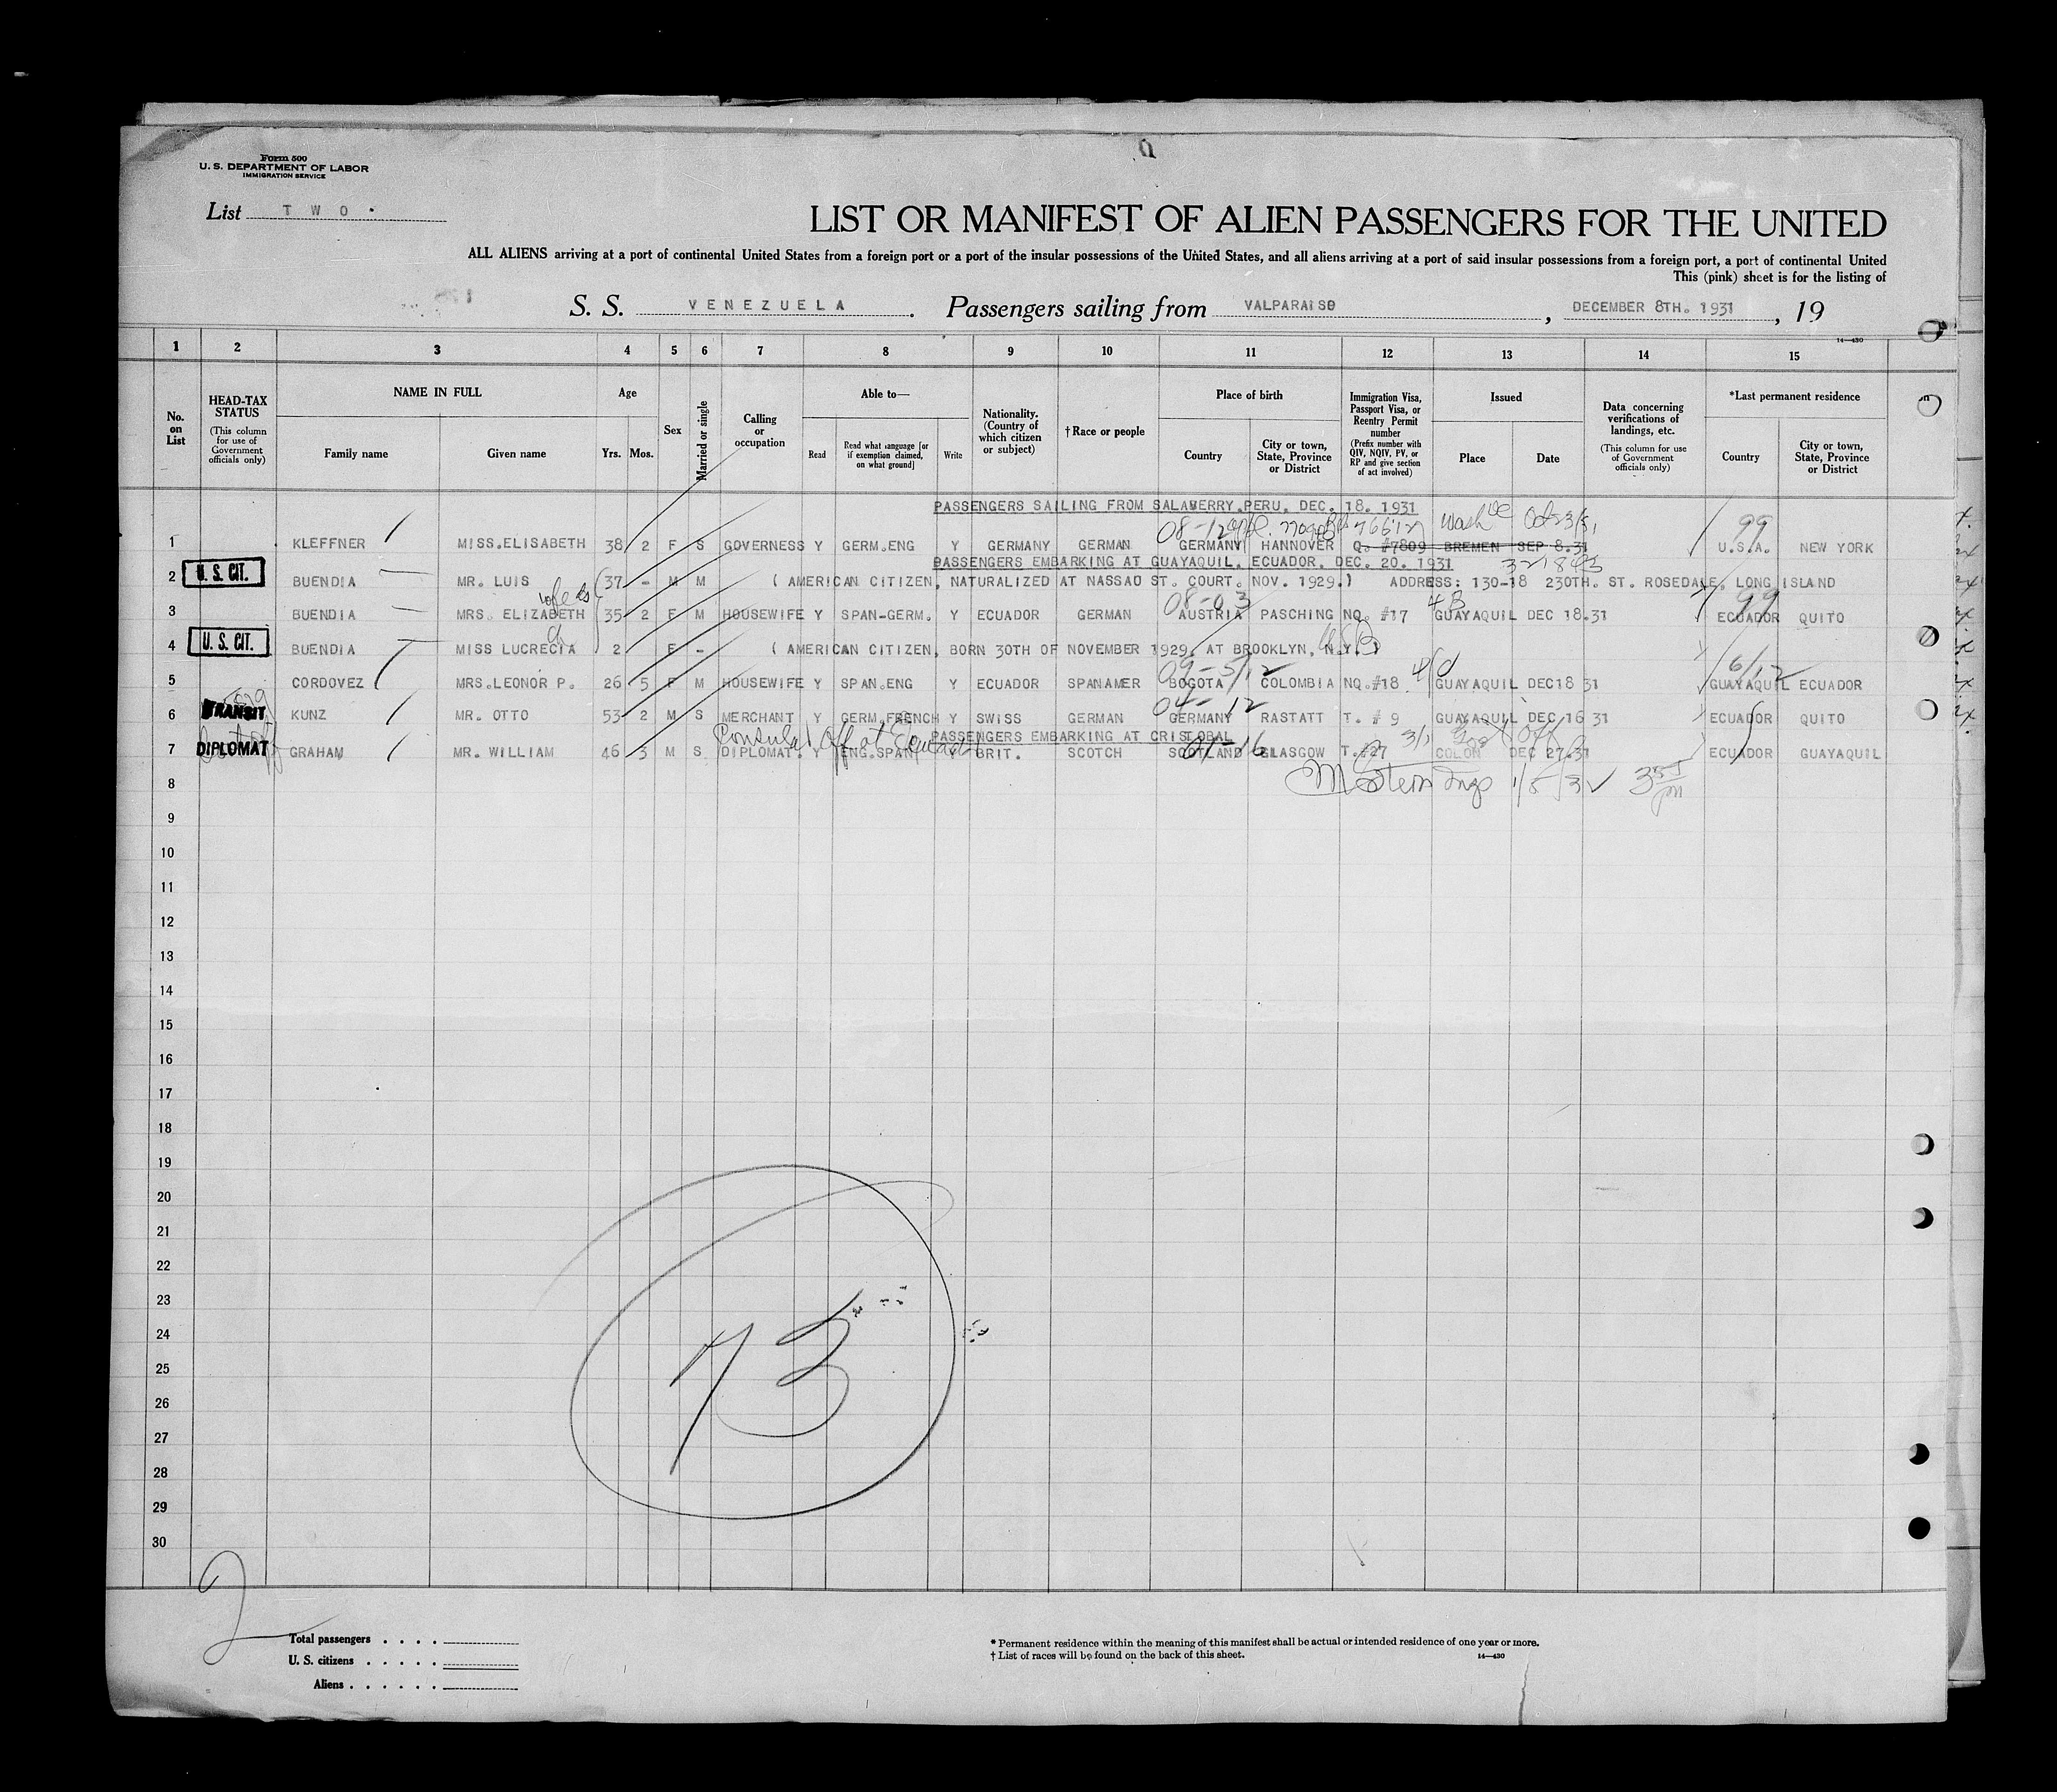 Form 500
U. S. DEPARTMENT OF LABOR
IMMIGRATION SERVICE
List TWO.
LIST OR MANIFEST OF ALIEN PASSENGERS FOR THE UNITED
ALL ALIENS arriving at a port of continental United States from a foreign port or a port of the insular possessions of the United States, and all aliens arriving at a port of said insular possessions from a foreign port, a port of continental United
This (pink) sheet is for the listing of
S. S. VENEZUELA. Passengers sailing from VALPARAISO, DECEMBER 8TH. 1931, 19
14—430
1 2 3 4 5 6 7 8 9 10 11 12 13 14 15
No. on List
HEAD-TAX STATUS (This column for use of Government officials only)
NAME IN FULL
Family name
Given name
Age
Yrs. Mos.
Sex
Married or single
Calling or occupation
Able to—
Read
Read what language [or if exemption claimed, on what ground]
Write
Nationality. (Country of which citizen or subject)
†Race or people
Place of birth
Country
City or town, State, Province or District
Immigration Visa, Passport Visa, or Reentry Permit number (Prefix number with QIV, NQIV, PV, or RP and give section of act involved)
Issued
Place
Date
Data concerning verifications of landings, etc. (This column for use of Government officials only)
*Last permanent residence
Country
City or town, State, Province or District
PASSENGERS SAILING FROM SALAVERRY.PERU. DEC. 18. 1931
08-12 Wash 99
1 KLEFFNER MISS.ELISABETH 38 2 F S GOVERNESS Y GERM.ENG Y GERMANY GERMAN GERMANY HANNOVER Q. #7809 BREMEN SEP 8.31 U.S.A. NEW YORK
PASSENGERS EMBARKING AT GUAYAQUIL. ECUADOR. DEC. 20. 1931
2 U. S. CIT. BUENDIA MR. LUIS 37 - M M ( AMERICAN CITIZEN, NATURALIZED AT NASSAU ST. COURT. NOV. 1929.) ADDRESS: 130-18 230TH. ST. ROSEDALE. LONG ISLAND
08-03 4B 99
3 BUENDIA MRS. ELIZABETH 35 2 F M HOUSEWIFE Y SPAN-GERM. Y ECUADOR GERMAN AUSTRIA PASCHING NQ. #17 GUAYAQUIL DEC 18.31 ECUADOR QUITO
4 U. S. CIT. BUENDIA MISS LUCRECIA 2 F - ( AMERICAN CITIZEN, BORN 30TH OF NOVEMBER 1929, AT BROOKLYN, N.Y. )
5 CORDOVEZ MRS.LEONOR P. 26 5 F M HOUSEWIFE Y SPAN.ENG Y ECUADOR SPANAMER BOGOTA COLOMBIA NQ.#18 GUAYAQUIL DEC18 31 GUAYAQUIL ECUADOR
6 TRANSIT KUNZ MR. OTTO 53 2 M S MERCHANT Y GERM.FRENCH Y SWISS GERMAN GERMANY RASTATT T. # 9 GUAYAQUIL DEC 16 31 ECUADOR QUITO
PASSENGERS EMBARKING AT CRISTOBAL
7 DIPLOMAT GRAHAM MR. WILLIAM 46 3 M S DIPLOMAT. Y ENG.SPAN Y BRIT. SCOTCH SCOTLAND GLASGOW T.#27 COLON DEC 27.31 ECUADOR GUAYAQUIL
8
9
10
11
12
13
14
15
16
17
18
19
20
21
22
23
24
25
26
27
28
29
30
73
2
Total passengers
U. S. citizens
Aliens
* Permanent residence within the meaning of this manifest shall be actual or intended residence of one year or more.
† List of races will be found on the back of this sheet.
14—430